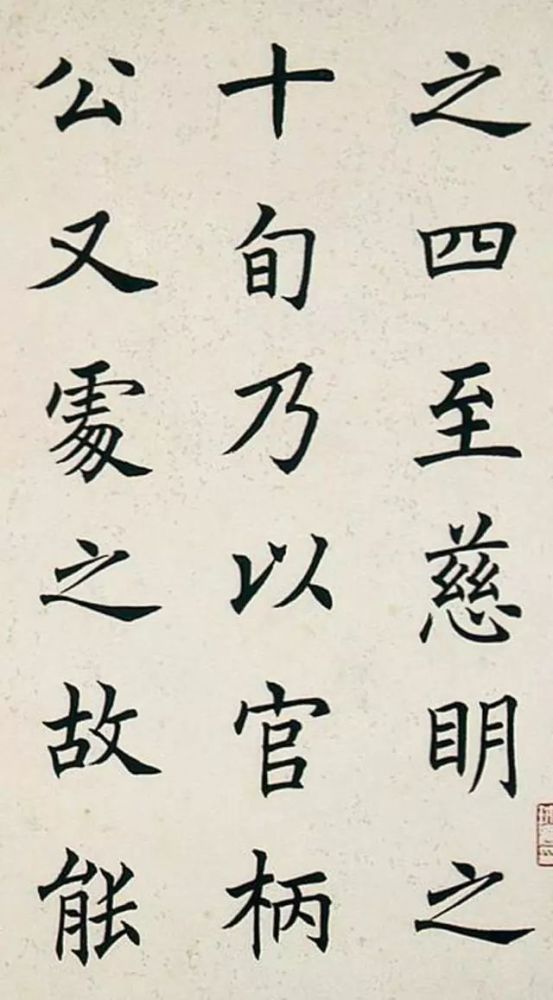 之四至慈明之
十旬乃以官柄
公又處之故能